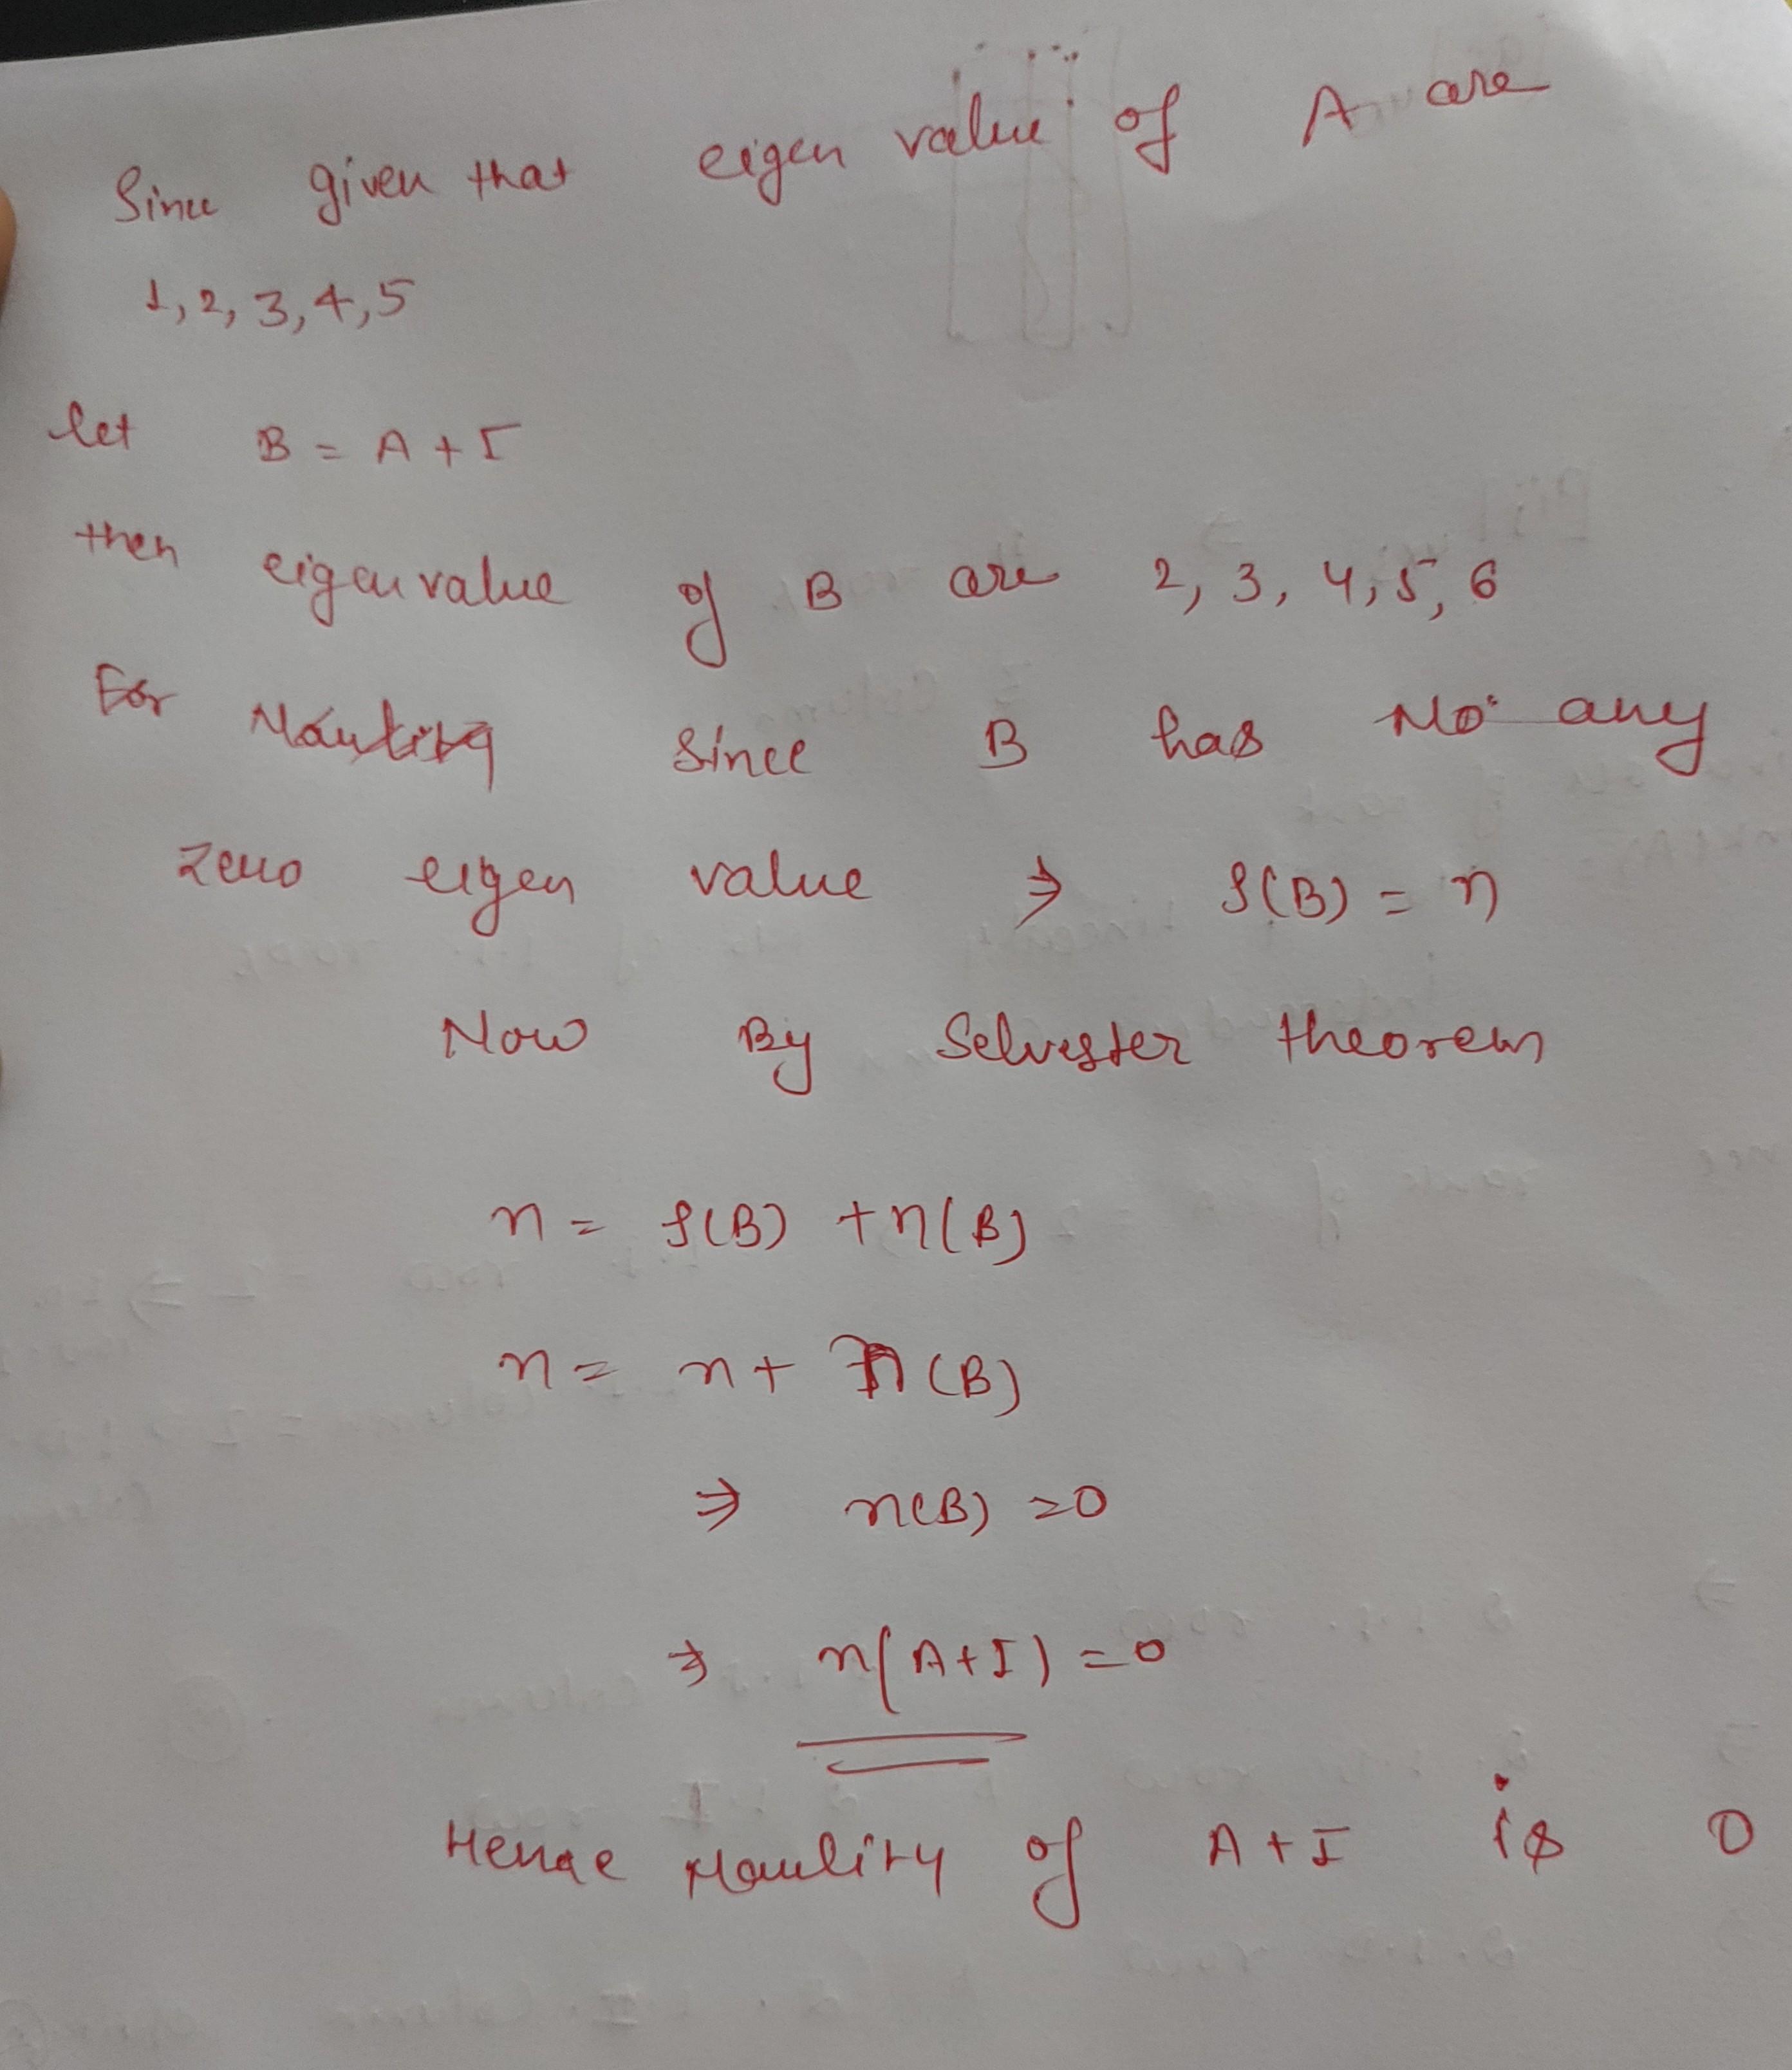 Since given that eigen value of A are
1, 2, 3, 4, 5
let B = A + I
then eigen value of B are 2, 3, 4, 5, 6
For since B has No any
zero eigen value ⇒ ρ(B) = n
Now By Selvester theorem
n = ρ(B) + η(B)
n = n + η(B)
⇒ n(B) = 0
⇒ n(A+I) = 0
Hence of A + I is 0